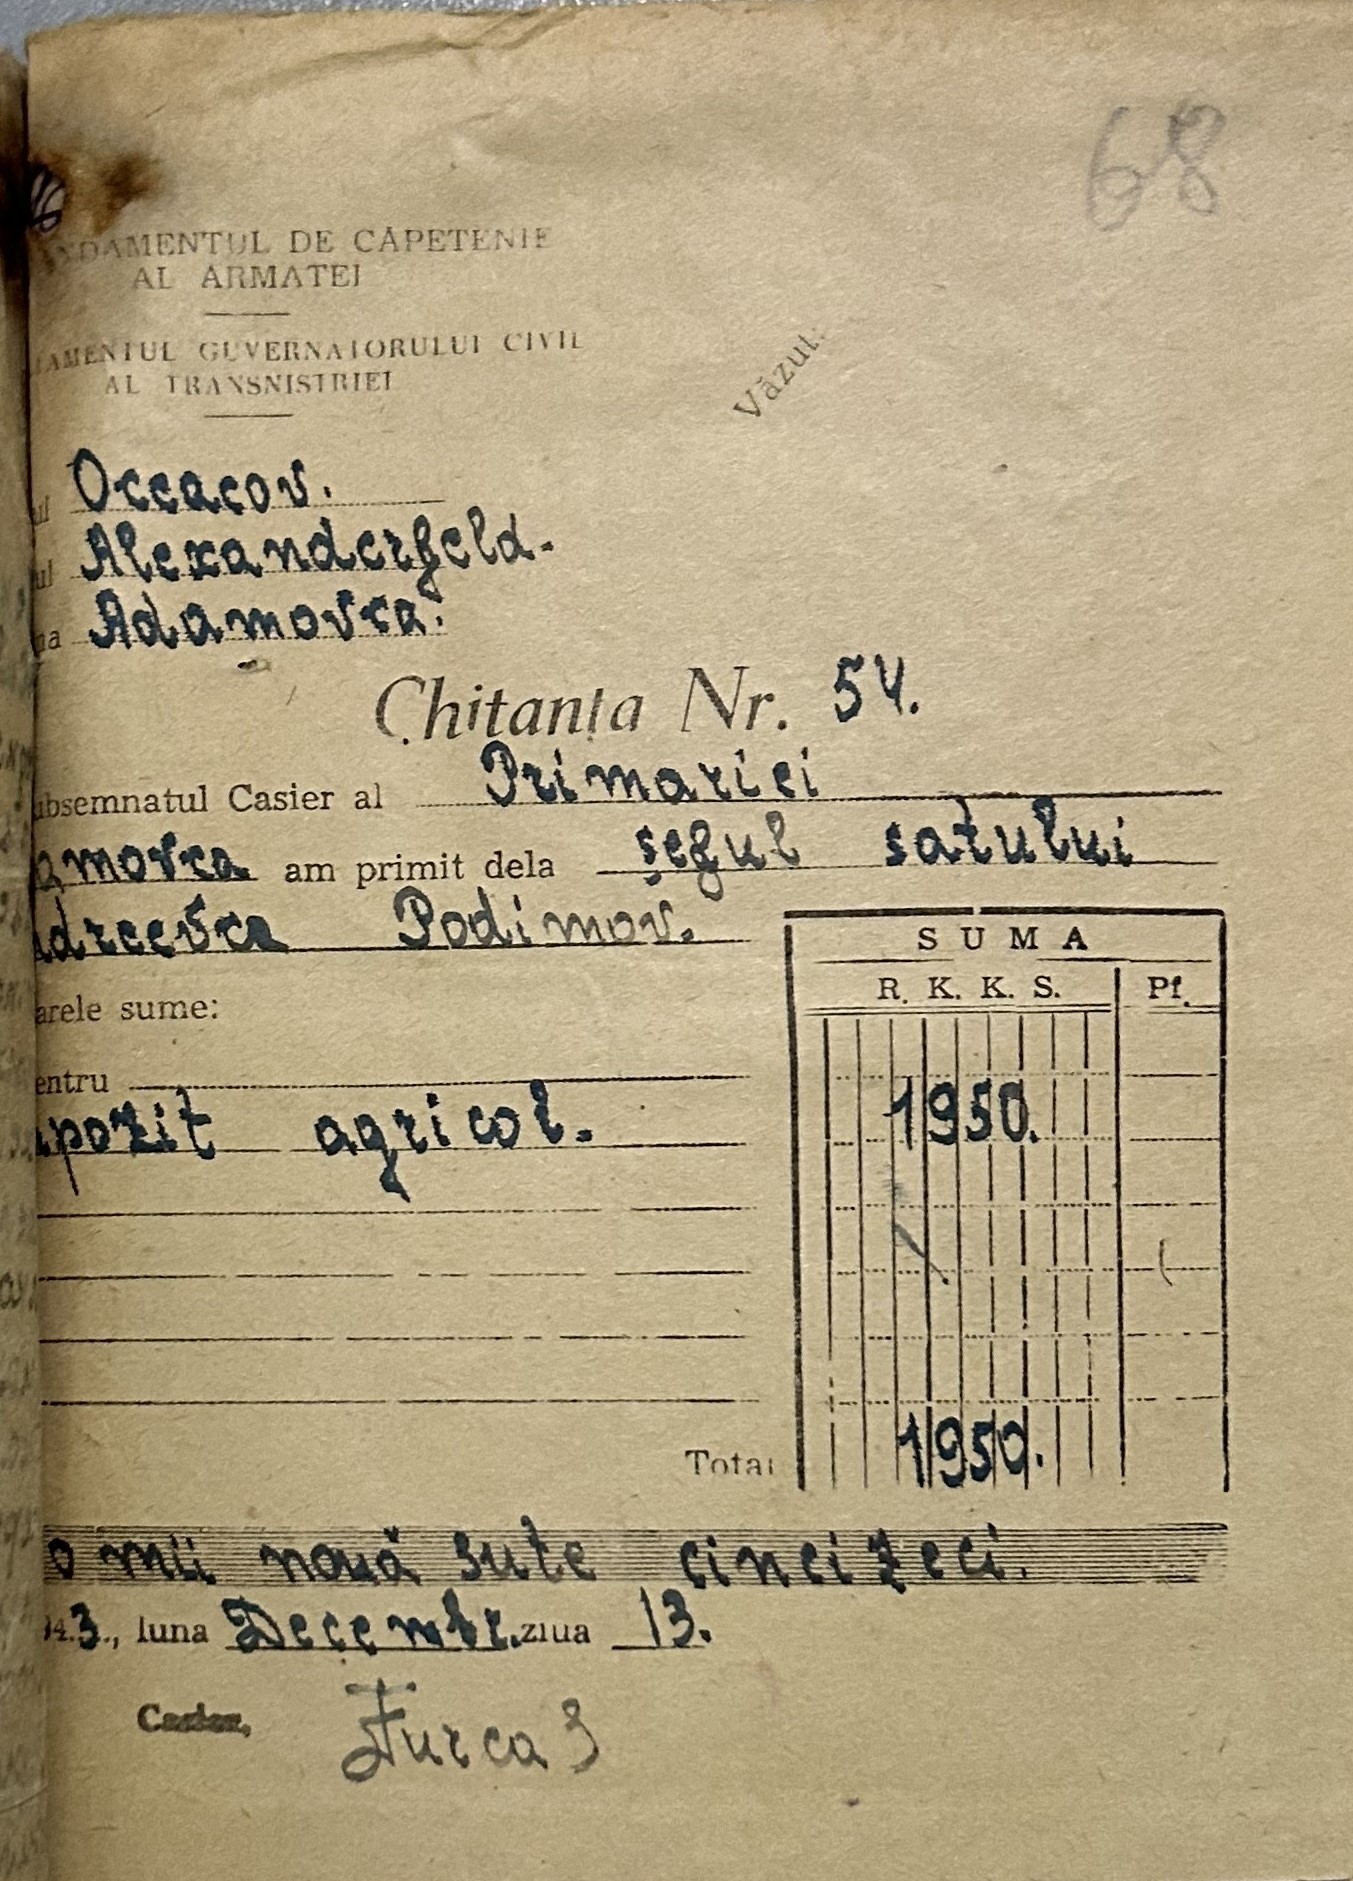 68
NDAMENTUL DE CAPETENIE
AL ARMATEI
AMENTUL GUVERNATORULUI CIVIL
AL TRANSNISTRIEI
Văzut:
ul Occacov.
ul Alexanderfeld.
na Adamovca.
Chitanța Nr. 54.
ubsemnatul Casier al Primariei
amovca am primit dela șeful satului
dreevca Podimov.
SUMA
R. K. K. S. Pf.
arele sume:
entru
1950.
pozit agricol.
Total 1950.
o mii nouă sute cincizeci.
94.3., luna Decembr. ziua 13.
Casier,